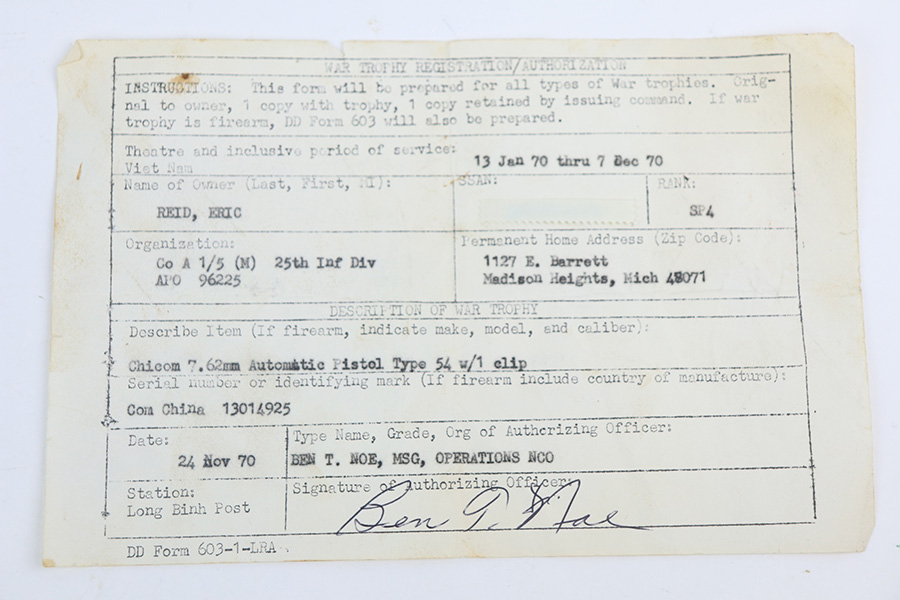 WAR TROPHY REGISTRATION/AUTHORIZATION
INSTRUCTIONS: This form will be prepared for all types of War trophies. Orig-
nal to owner, 1 copy with trophy, 1 copy retained by issuing command. If war
trophy is firearm, DD Form 603 will also be prepared.
Theatre and inclusive period of service:
Viet Nam
13 Jan 70 thru 7 Dec 70
Name of Owner (Last, First, MI):
REID, ERIC
SSAN:
RANK:
SP4
Organization:
Co A 1/5 (M) 25th Inf Div
APO 96225
Permanent Home Address (Zip Code):
1127 E. Barrett
Madison Heights, Mich 48071
DESCRIPTION OF WAR TROPHY
Describe Item (If firearm, indicate make, model, and caliber):
Chicom 7.62mm Automatic Pistol Type 54 w/1 clip
Serial number or identifying mark (If firearm include country of manufacture):
Com China 13014925
Date:
24 Nov 70
Type Name, Grade, Org of Authorizing Officer:
BEN T. NOE, MSG, OPERATIONS NCO
Station:
Long Binh Post
Signature of Authorizing Officer:
Ben T. Noe
DD Form 603-1-LRA